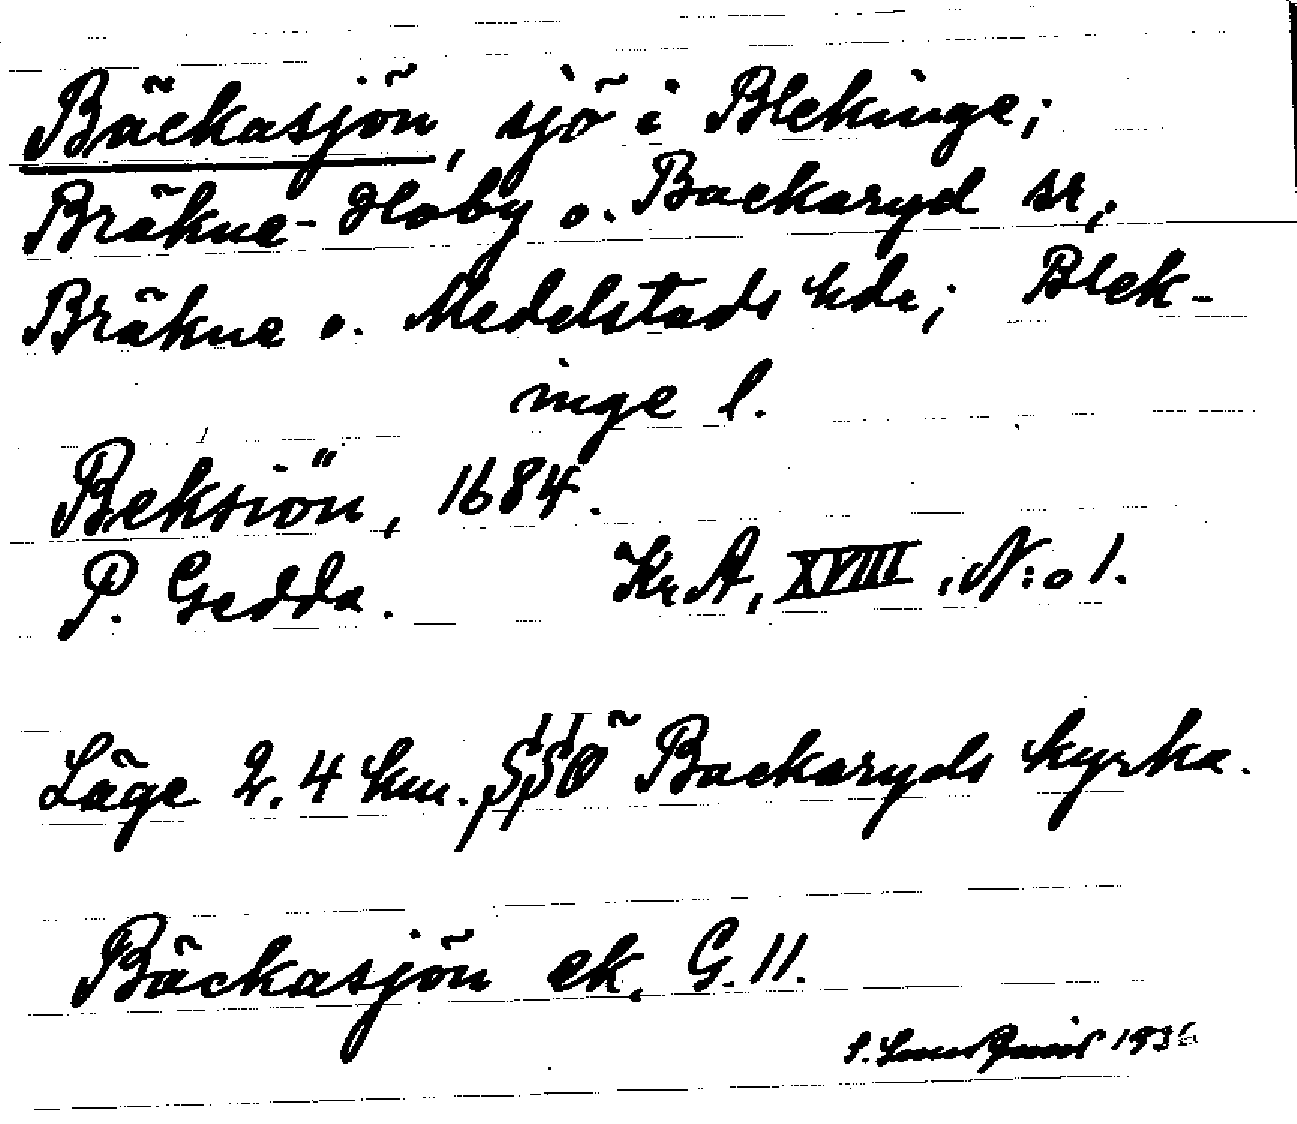 Bäckasjön, sjö i Blekinge;
Bräkne-Hoby o. Backaryd sr,
Bräkne o. Medelstads hdr; Blek-
inge l.
Beksiön, 1684.
P. Gedda. Kr A, XVIII, N:o 1.
Läge 2,4 km. SSÖ Backaryds kyrka.
Bäckasjön ek. G. 11.
1936